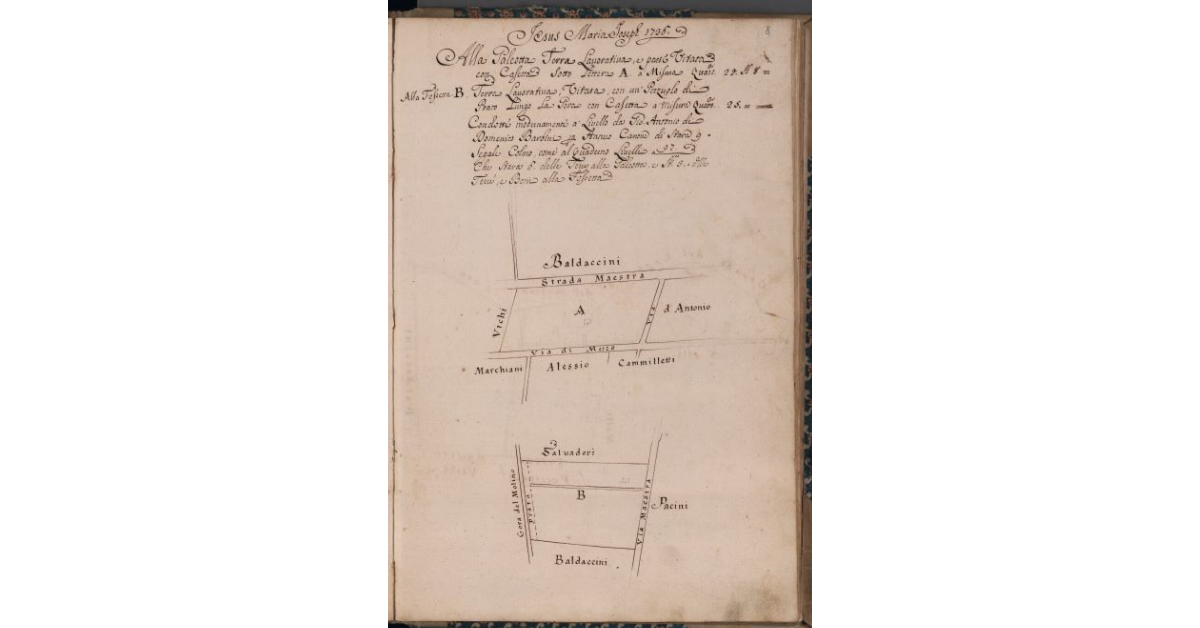 8
Jesus Maria Joseph 1736.
Alla Palcotta Terra Lavorativa, e parte Vitata
con Casetta Sotto Lettera A. a Misura Quare. 29. 8
Alla Fossetta B. Terra Lavorativa, Vitata, con un Pezzuolo di
Prato Lungo La Gora con Casetta a misura Quare. 25.
Condotti a Livello da Pio Antonio di
Domenico Annuo Canone di Stara 9
Segale Colmo, come al Quaderno Livelli 97.
Che Stara 6. delle Terre alla Palcotta, e
Terre, e Beni alla Fossetta
Baldaccini
Strada Maestra
Vichi
A
Via
d'Antonio
Via di Mezo
Marchiani
Alessio
Cammilletti
Salvaderi
Gora del Molino
Prato
B
Via Maestra
Pacini
Baldaccini